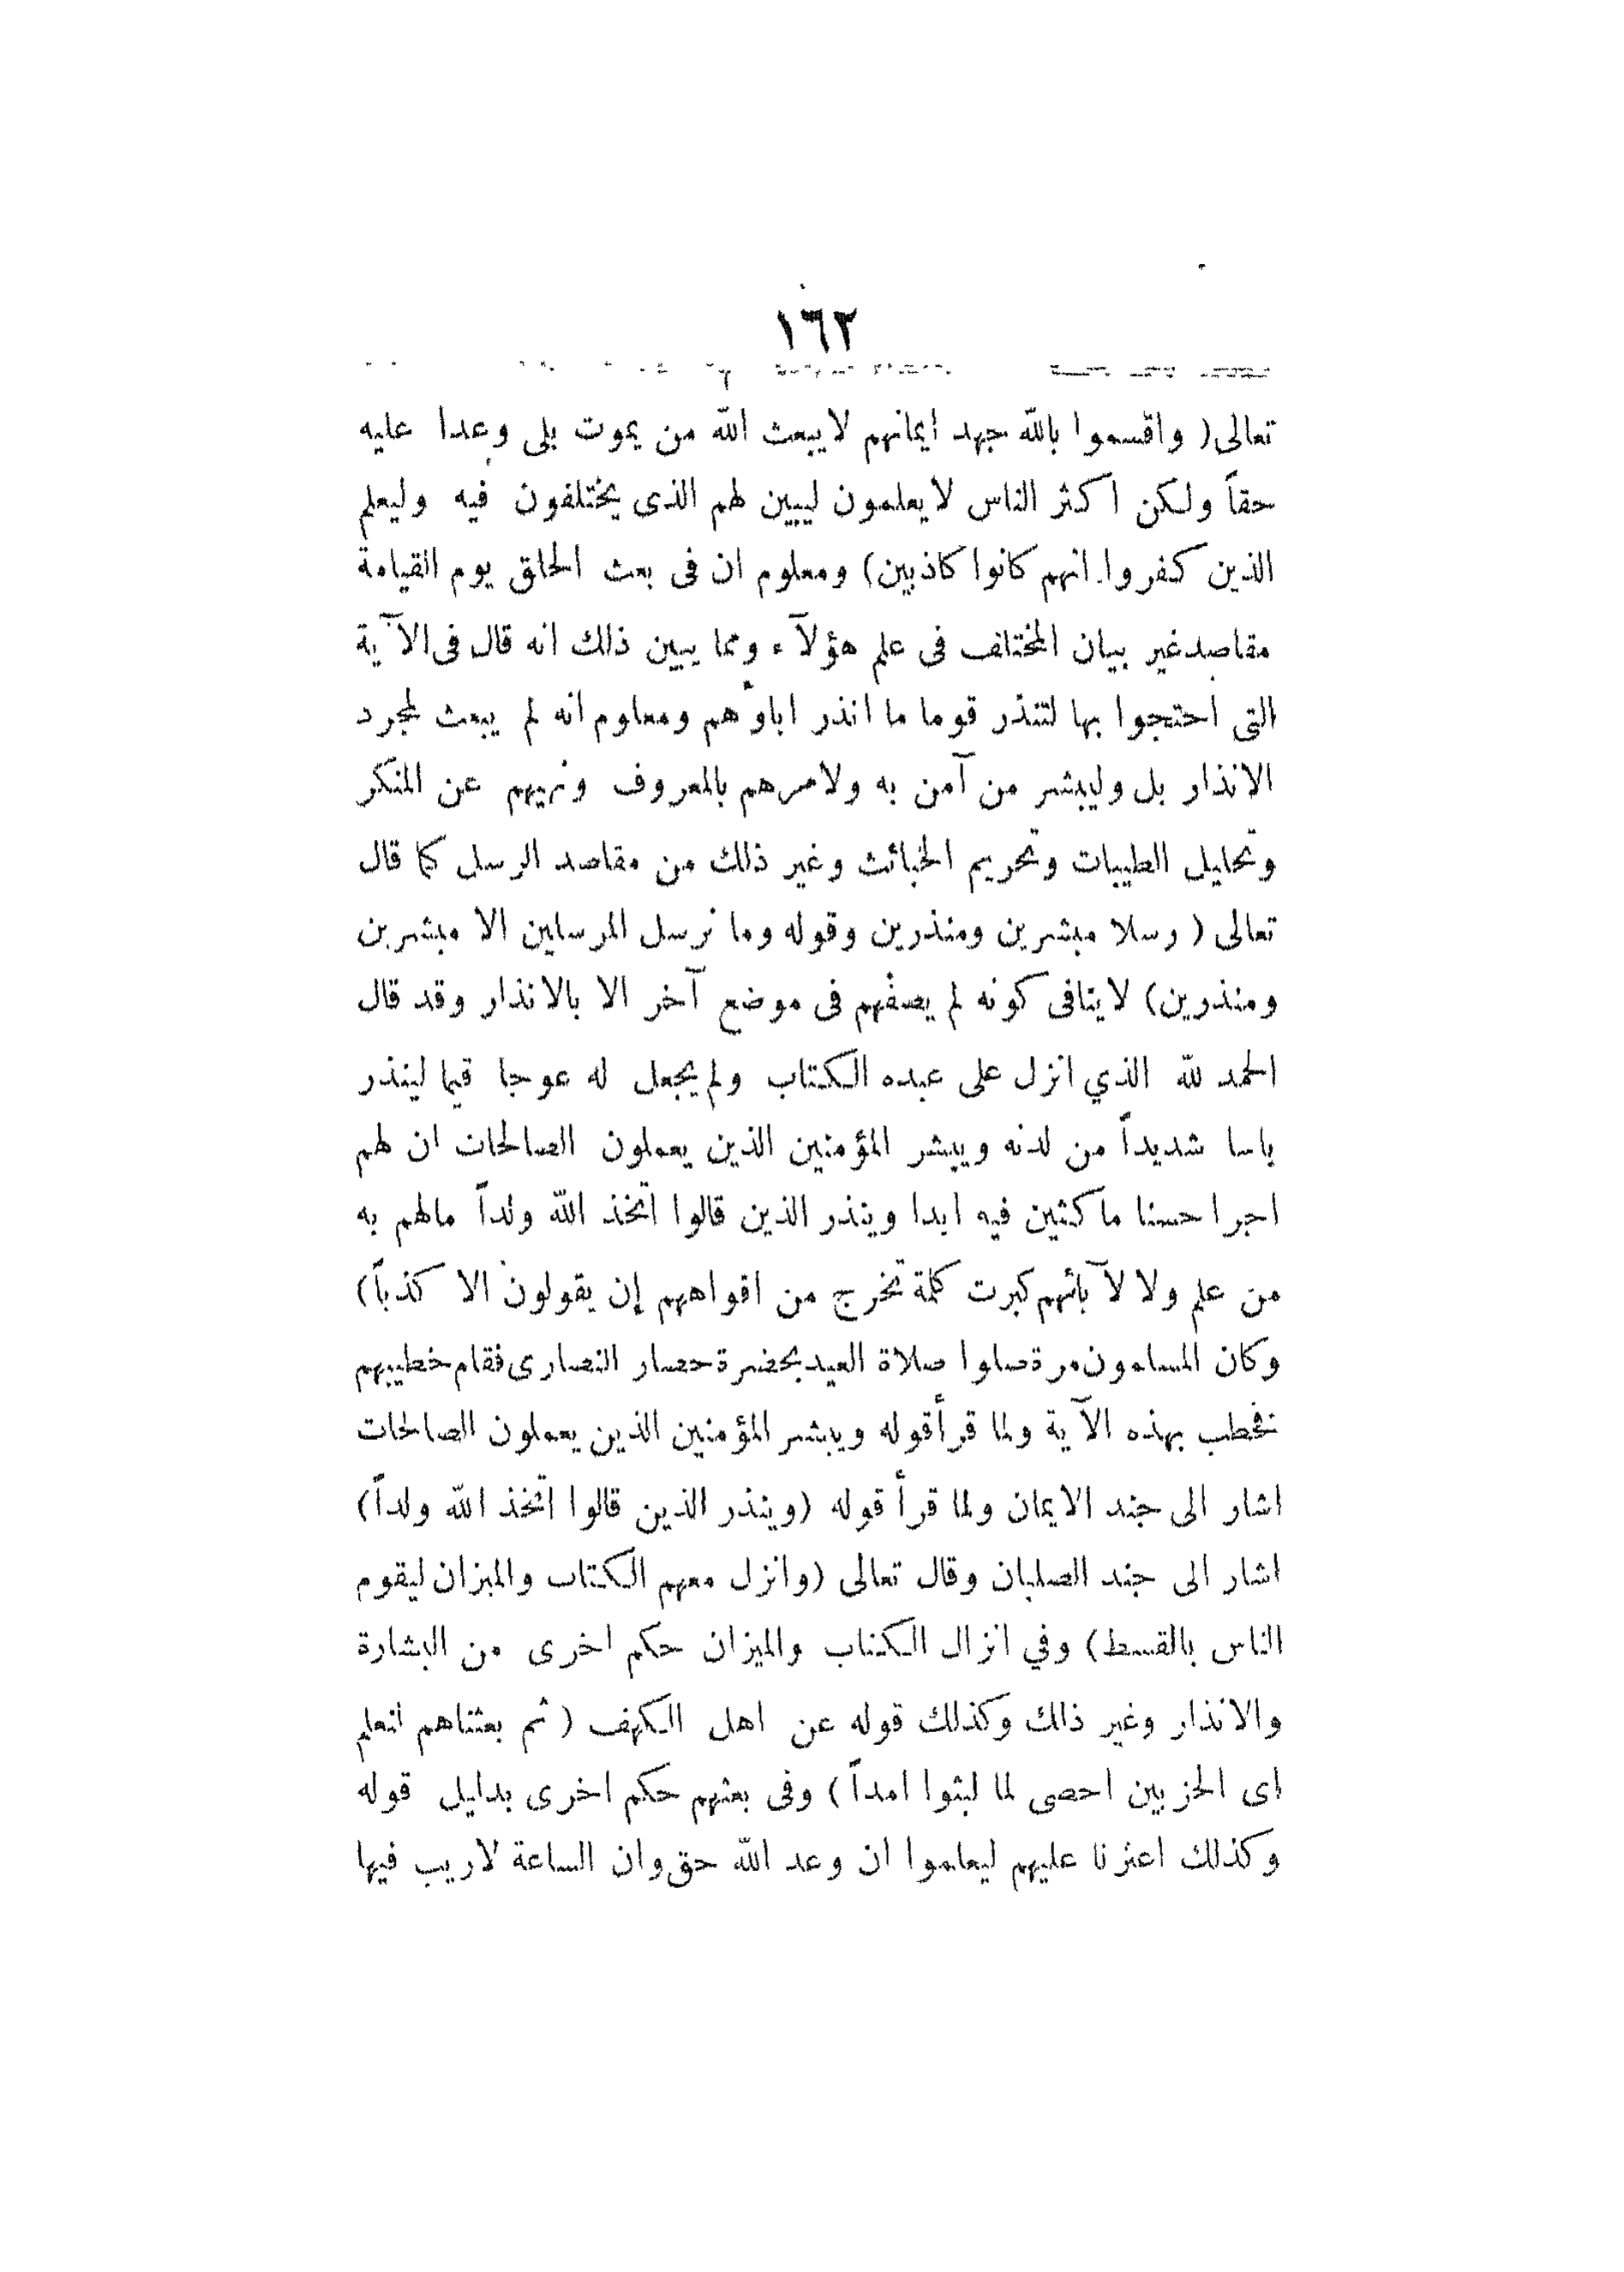 ١٦٢
تعالى( واقسموا بالله جهد ايمانهم لايبعث الله من يموت بلى وعدا عليه
حقاً ولكن اكثر الناس لايعلمون ليبين لهم الذى يختلفون فيه وليعلم
الذين كفروا انهم كانوا كاذبين) ومعلوم ان فى بعث الخلق يوم القيامة
مقاصد غير بيان المختلف فى علم هؤلآء ومما يبين ذلك انه قال فى الآية
التى احتجوا بها لتنذر قوما ما انذر اباؤهم ومعلوم انه لم يبعث لمجرد
الانذار بل وليبشر من آمن به ولامرهم بالمعروف ونهيهم عن المنكر
وتحليل الطيبات وتحريم الخبائث وغير ذلك من مقاصد الرسل كما قال
تعالى ( رسلا مبشرين ومنذرين وقوله وما نرسل المرسلين الا مبشرين
ومنذرين) لاينافى كونه لم يصفهم فى موضع آخر الا بالانذار وقد قال
الحمد لله الذي انزل على عبده الكتاب ولم يجعل له عوجا قيما لينذر
باسا شديداً من لدنه ويبشر المؤمنين الذين يعملون الصالحات ان لهم
اجرا حسنا ماكثين فيه ابدا وينذر الذين قالوا اتخذ الله ولداً مالهم به
من علم ولا لآبائهم كبرت كلمة تخرج من افواههم إن يقولون الا كذباً)
وكان المسلمون مرة صلوا صلاة العيد بحضرة حصار النصارى فقام خطيبهم
فخطب بهذه الآية ولما قرأ قوله ويبشر المؤمنين الذين يعملون الصالحات
اشار الى جند الايمان ولما قرأ قوله (وينذر الذين قالوا اتخذ الله ولداً)
اشار الى جند الصلبان وقال تعالى (وانزل معهم الكتاب والميزان ليقوم
الناس بالقسط) وفي انزال الكتاب والميزان حكم اخرى من البشارة
والانذار وغير ذلك وكذلك قوله عن اهل الكهف ( ثم بعثناهم لنعلم
اى الحزبين احصى لما لبثوا امداً ) وفى بعثهم حكم اخرى بدايل قوله
وكذلك اعثرنا عليهم ليعلموا ان وعد الله حق وان الساعة لاريب فيها